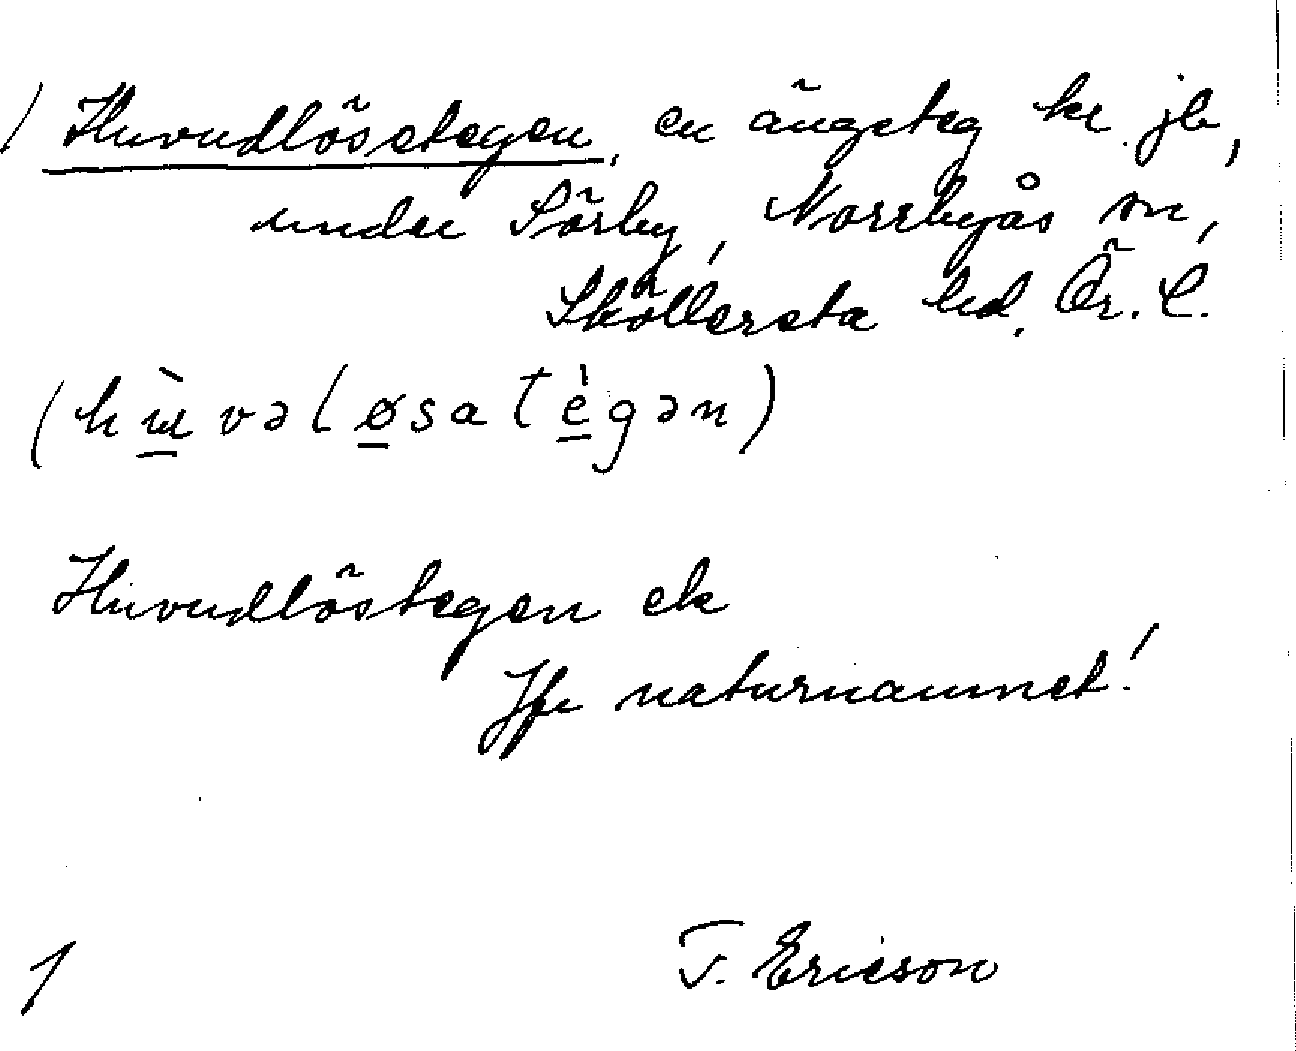 / Huvudlösetegen, en ängsteg kr. jb,
under Sörby, Norrbyås sn,
Sköllersta hd. Ör. l.
(hùvəløsatégən)
Huvudlöstegen ek
Jfr naturnamnet!
1 T. Ericson